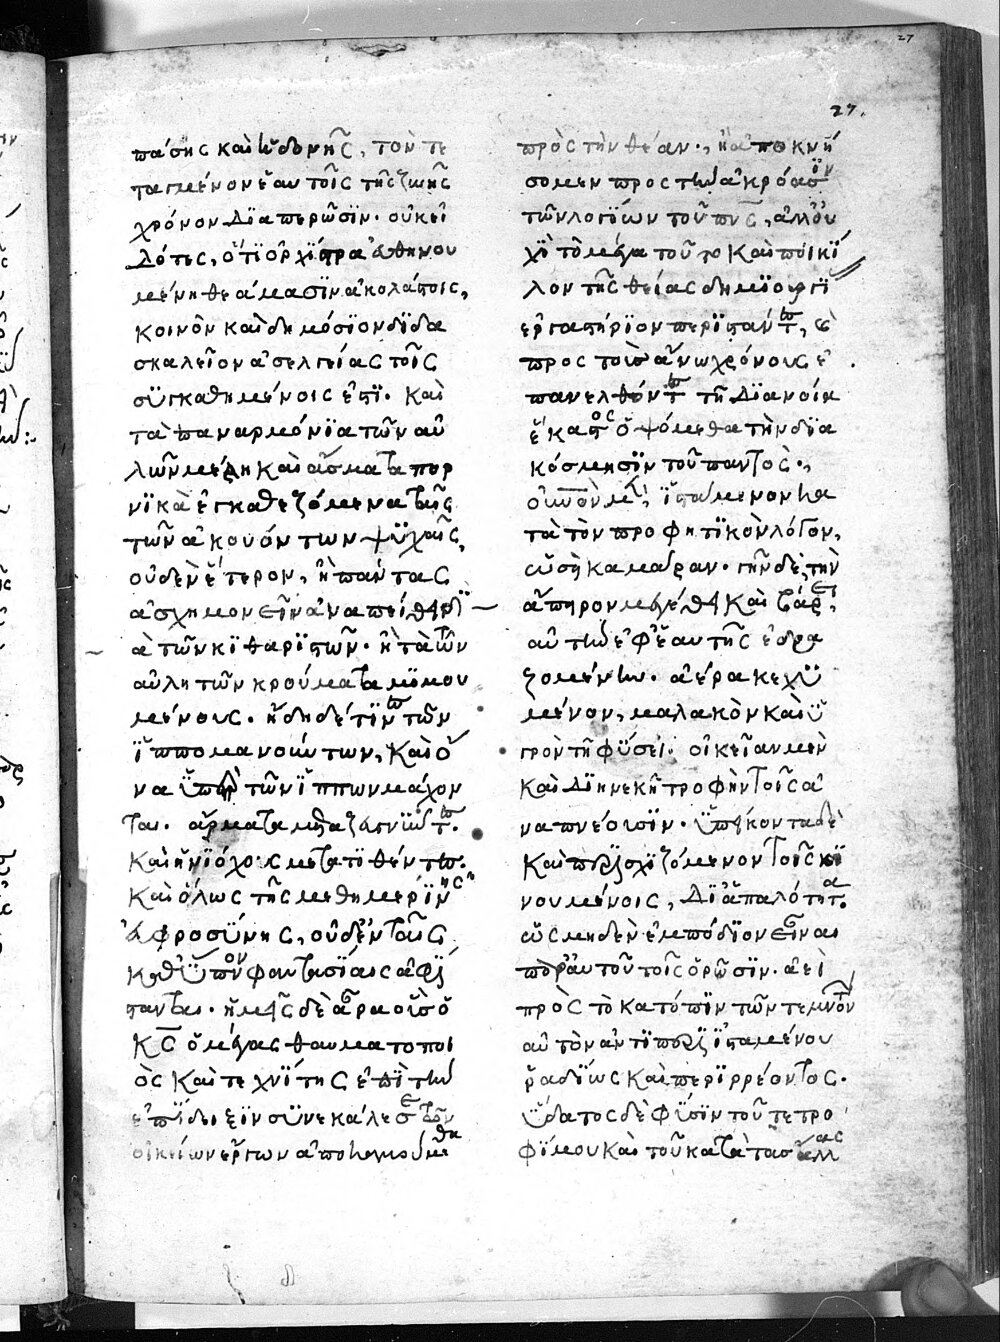 27
27.
πάσης καὶ ἡδονῆς, τὸν τε
ταγμένον ἑαυτοῖς τῆς ζωῆς
χρόνον διαπερῶσϊν· οὐκ εἰ
δότες, ὅτι ὀρχήστρα εὐθηνου
μένη θεάμασϊν ἀκολάστοις,
κοινὸν καὶ δημόσϊον διδα
σκαλεῖον ἀσελγείας τοῖς
συγκαθημένοις ἐστϊ. καὶ
τὰ παναρμόνϊα τῶν αὐ
λῶν μέλη καὶ ἄσματα πορ
νϊκὰ ἐγκαθεζόμενα ταῖς
τῶν ἀκουόντων ψϋχαῖς,
οὐδὲν ἕτερον, ἢ πάντας
ἀσχημονεῖν ἀναπείθει
τὰ τῶν κιθαρϊστῶν· ἢ τὰ τῶν
αὐλητῶν κρούματα μϊμου
μένους· ἤδη δέ τϊν τῶν
ἱππομανούντων, καὶ ὄ
ναρ ὑπὲρ τῶν ἵππων μάχον
ται· ἅρματα μεταζευγνϋντ.
καὶ ἡνϊόχους μετατϊθέντ.
καὶ ὅλως τῆς μεθημερϊνῆς
ἀφροσύνης, οὐδὲν ταῖς
καθ ὕπνον φαντασίαις ἀφί
σταντai· ἡμεῖς δὲ ἆρα οὓς ὁ
κς ὁ μέγας θαυματοποι
ὸς καὶ τεχνίτης ἐπὶ τὴν
ἐπίδειξϊν συνεκάλεσε τῶν
οἰκείων ἔργων ἀποκάμωμεν
πρὸς τὴν θέαν·, ἢ ἀποκνή
σομεν προς τὴν ἀκρόασϊν
τῶν λογίων τοῦ πνς, ἀλλ οὐ
χὶ τὸ μέγα τοῦτο καὶ ποικί
λον τῆς θείας δημϊουργί
ἐργαστήρϊον περϊστάντ,
προς τοὺς ἄνω χρόνους ἐ
πανελθόντ τῆ διανοία
ἕκαστος ὀψόμεθα τὴν δϊα
κόσμησϊν τοῦ παντὸς·,
οὐνον μ, ἱστάμενον κα
τὰ τὸν προφητϊκὸν λόγον,
ὡσὴ καμάραν· γῆν δὲ, τὴν
ἄπειρον μεγέθει καὶ βάρει,
αὐτὴν ἐφ ἑαυτῆς ἑδρα
ζομένην· ἀέρα κεχϋ
μένον, μαλακὸν καὶ ὑ
γρὸν τῆ φύσει· οἰκείαν μὲν
καὶ δϊηνεκῆ τροφὴν τοῖς ἀ
ναπνέουσϊν· ὑπείκοντα δὲ
καὶ περισχϊζόμενον τοῖς κϊ
νουμένοις, δϊ ἁπαλότητα
ὡς μηδὲν ἐμπόδϊον εἶναι
παρ αὐτοῦ τοῖς ὁρῶσϊν· ἀεὶ
πρὸς τὸ κατόπϊν τῶν τεμνόντων
αὐτὸν ἀντϊπερϊϊσταμένου
ῥαδίως καὶ περϊρρέοντος·
ὕδατος δὲ φύσϊν τοῦ τε τρο
φίμου καὶ τοῦ κατὰ τὰς ἄλλας